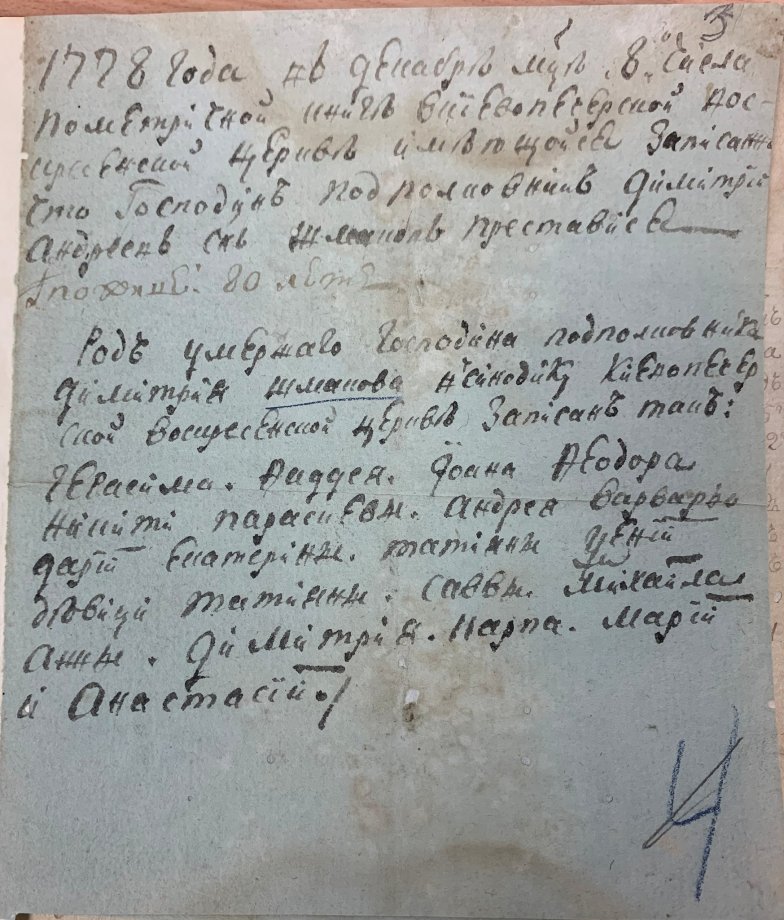 3
1778 Года въ декабрѣ мцѣ 8 числа
пометричной книгѣ киевопечерской вос-
кресенской церквѣ имѣющойся записанно
что Господинъ подполковникъ димитрій
андреевъ снъ жмаковъ преставися
80 лѣтъ
Родъ умершаго Господина подполковника
димитрія жмакова всинодику киевопечер
ской воскресенской церквѣ записанъ такъ:
герасима. Фаддея. іоана Феодора
никити параскевы. андрея варвары
дарій екатерины. татіяны
дѣвици татіяны. саввы. михайла
анны. димитрія. карпа. марій
и анастасій
4